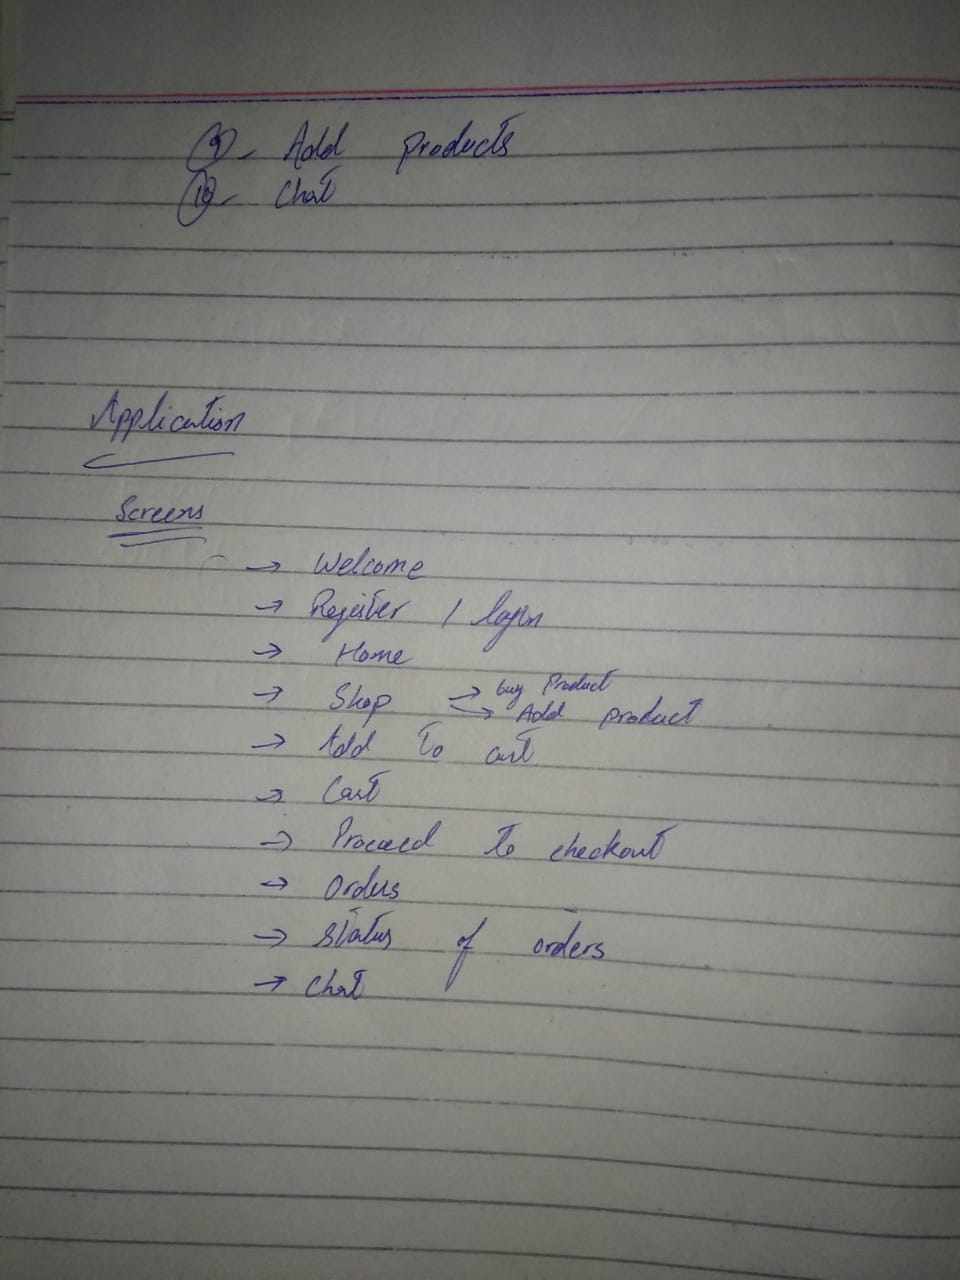 9- Add products
10- Chat
Application
Screens
→ Welcome
→ Register / login
→ Home
→ Shop → buy Product
→ Add product
→ Add to cart
→ Cart
→ Proceed to checkout
→ Orders
→ status of orders
→ chat